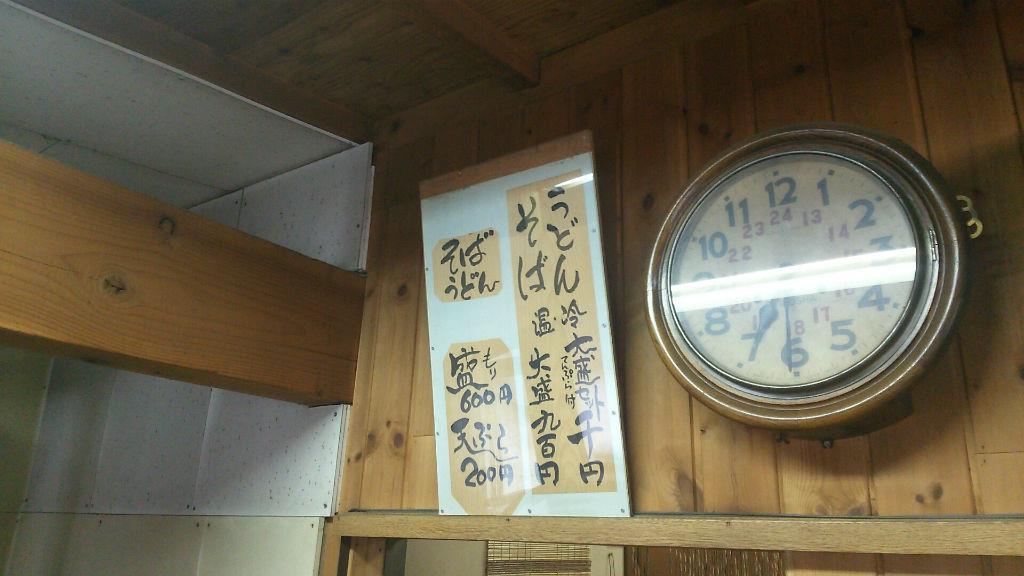 うどん 冷 大盛 千円
そば 温 大盛 九百円
そば
うどん
もり
盛
600円
天ぷら
200円
12
1
2
3
4
5
6
7
8
10
11
13
14
16
17
18
20
22
23
24